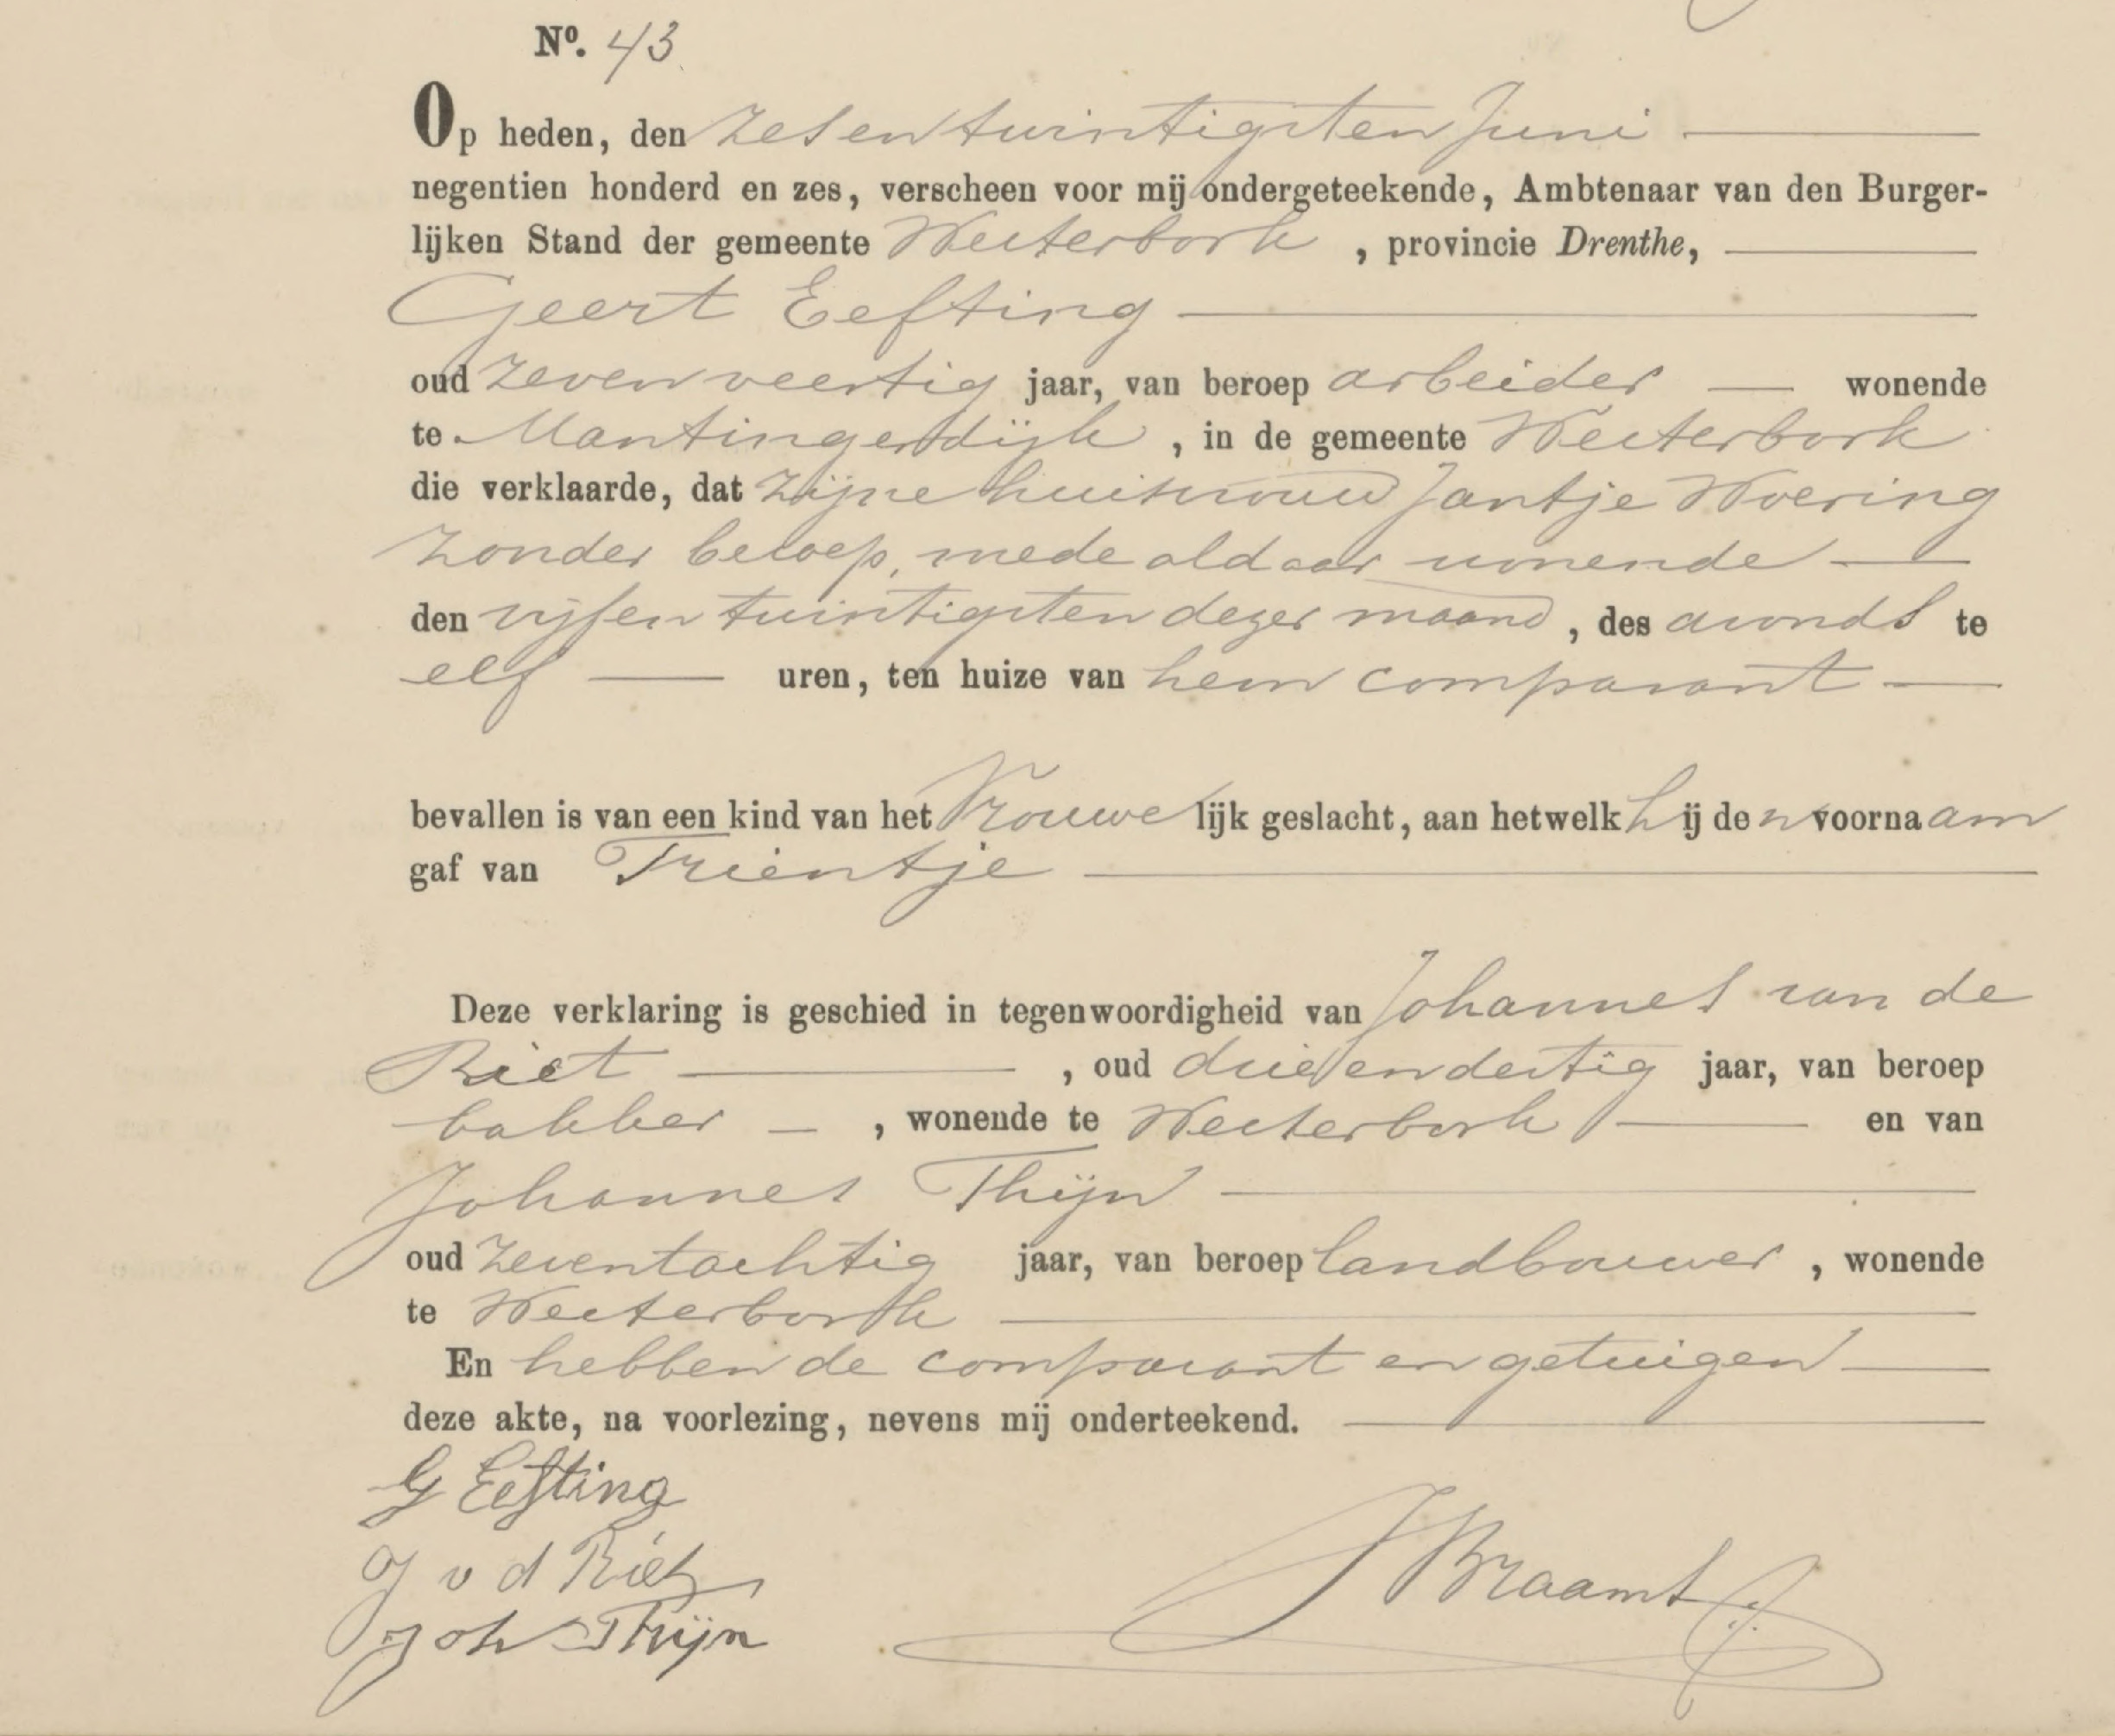 Nº. 43
Op heden, den zesentwintigsten Juni
negentien honderd en zes, verscheen voor mij ondergeteekende, Ambtenaar van den Burger-
lijken Stand der gemeente Westerbork, provincie Drenthe,
Geert Eefting
oud zevenveertig jaar, van beroep arbeider wonende
te Mantingerdijk, in de gemeente Westerbork
die verklaarde, dat zijne huisvrouw Jantje Woering
zonder beroep, mede aldaar wonende
den vijfentwintigsten dezer maand, des avonds te
elf uren, ten huize van hem comparant
bevallen is van een kind van het Vrouwelijk geslacht, aan hetwelk hij den voornaam
gaf van Trientje
Deze verklaring is geschied in tegenwoordigheid van Johannes van de
Riet, oud drieendertig jaar, van beroep
bakker, wonende te Westerbork en van
Johannes Thijn
oud zeventachtig jaar, van beroep landbouwer, wonende
te Westerbork
En hebben de comparant en getuigen
deze akte, na voorlezing, nevens mij onderteekend.
G Eefting
J v d Riet
Joh Thijn
J Braams